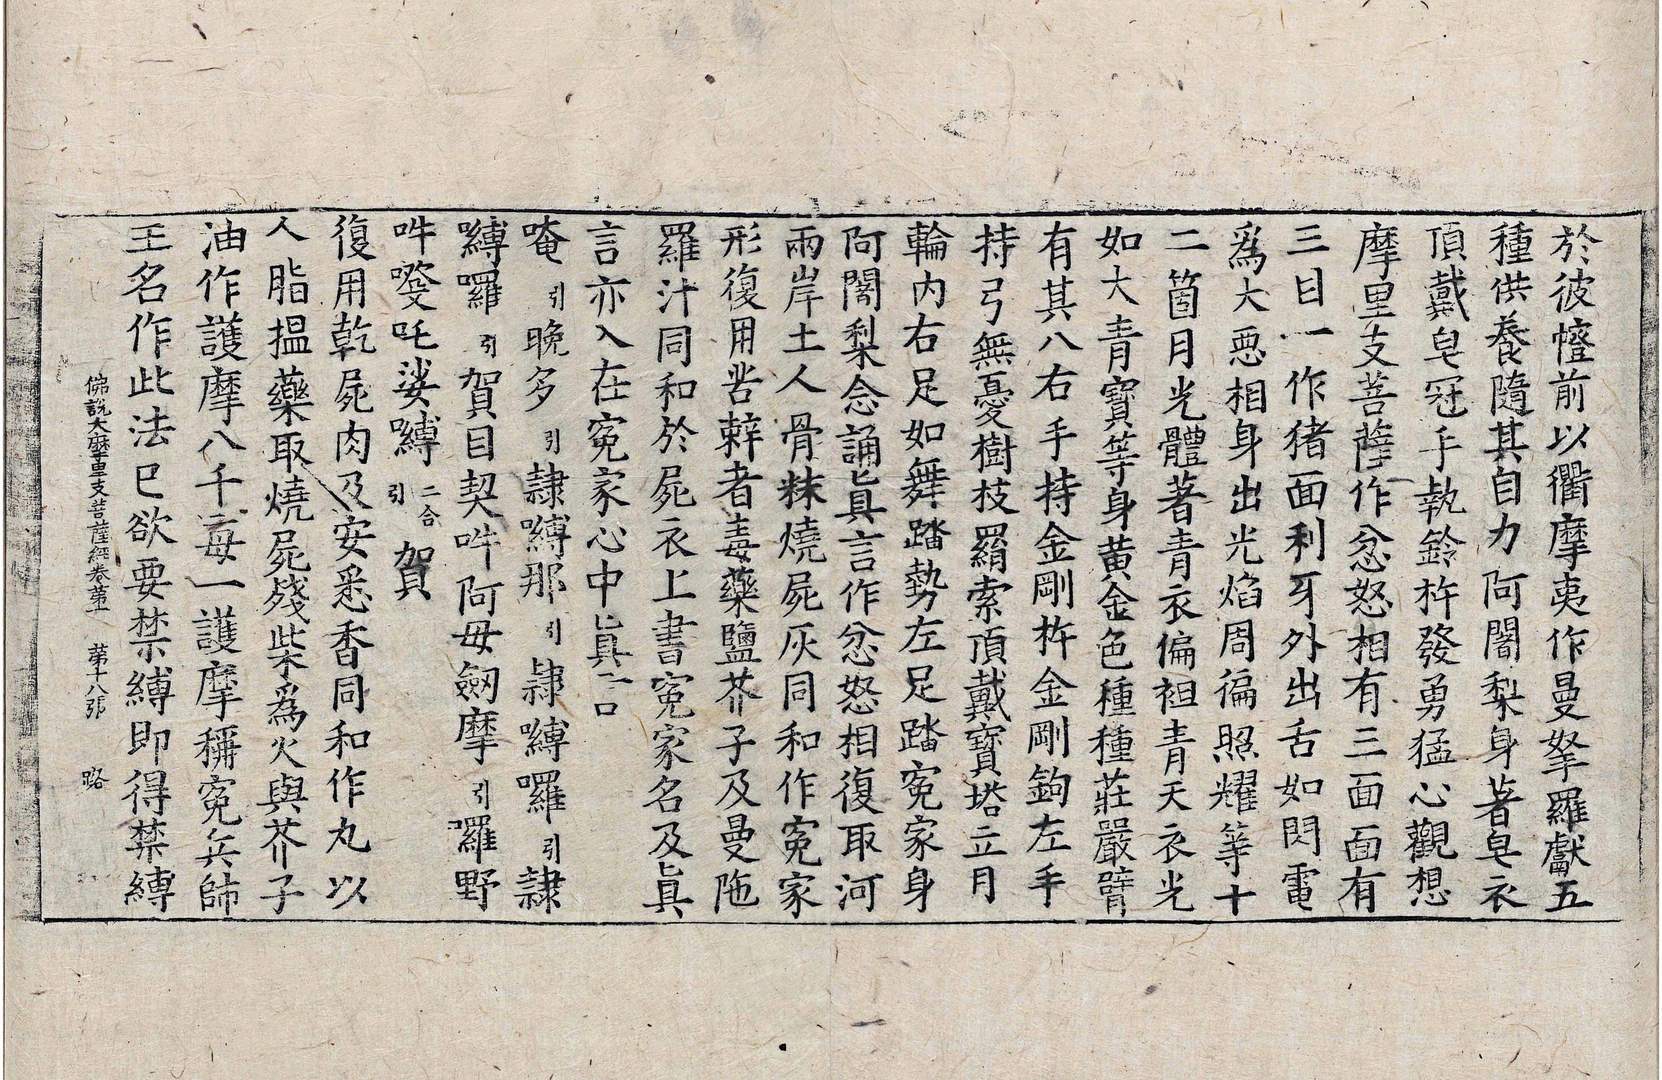 於彼㡧前以衢摩夷作曼拏羅獻五
種供養隨其自力阿闍梨身著皂衣
頂戴皂冠手執鈴杵發勇猛心觀想
摩里支菩薩作忿怒相有三面面有
三目一作猪面利牙外出舌如閃電
爲大惡相身出光焰周徧照耀等十
二箇月光體著青衣偏袒青天衣光
如大青寶等身黃金色種種莊嚴臂
有其八右手持金剛杵金剛鉤左手
持弓無憂樹枝羂索頂戴寶塔立月
輪內右足如舞踏勢左足踏寃家身
阿闍梨念誦眞言作忿怒相復取河
兩岸土人骨粖燒屍灰同和作寃家
形復用苦辢者毒藥鹽芥子及曼陁
羅汁同和於屍衣上書寃家名及眞
言亦入在寃家心中眞言曰
唵引晚多引隷嚩那引隷嚩囉引隷
嚩囉引賀目契吽阿毋劒摩引囉野
吽㗶吒娑嚩二合引賀
復用乾屍肉及安悉香同和作丸以
人脂揾藥取燒屍殘柴爲火與芥子
油作護摩八千每一護摩稱寃兵帥
王名作此法已欲要禁縛即得禁縛
佛說大摩里支菩薩經卷第五 第十八張 路